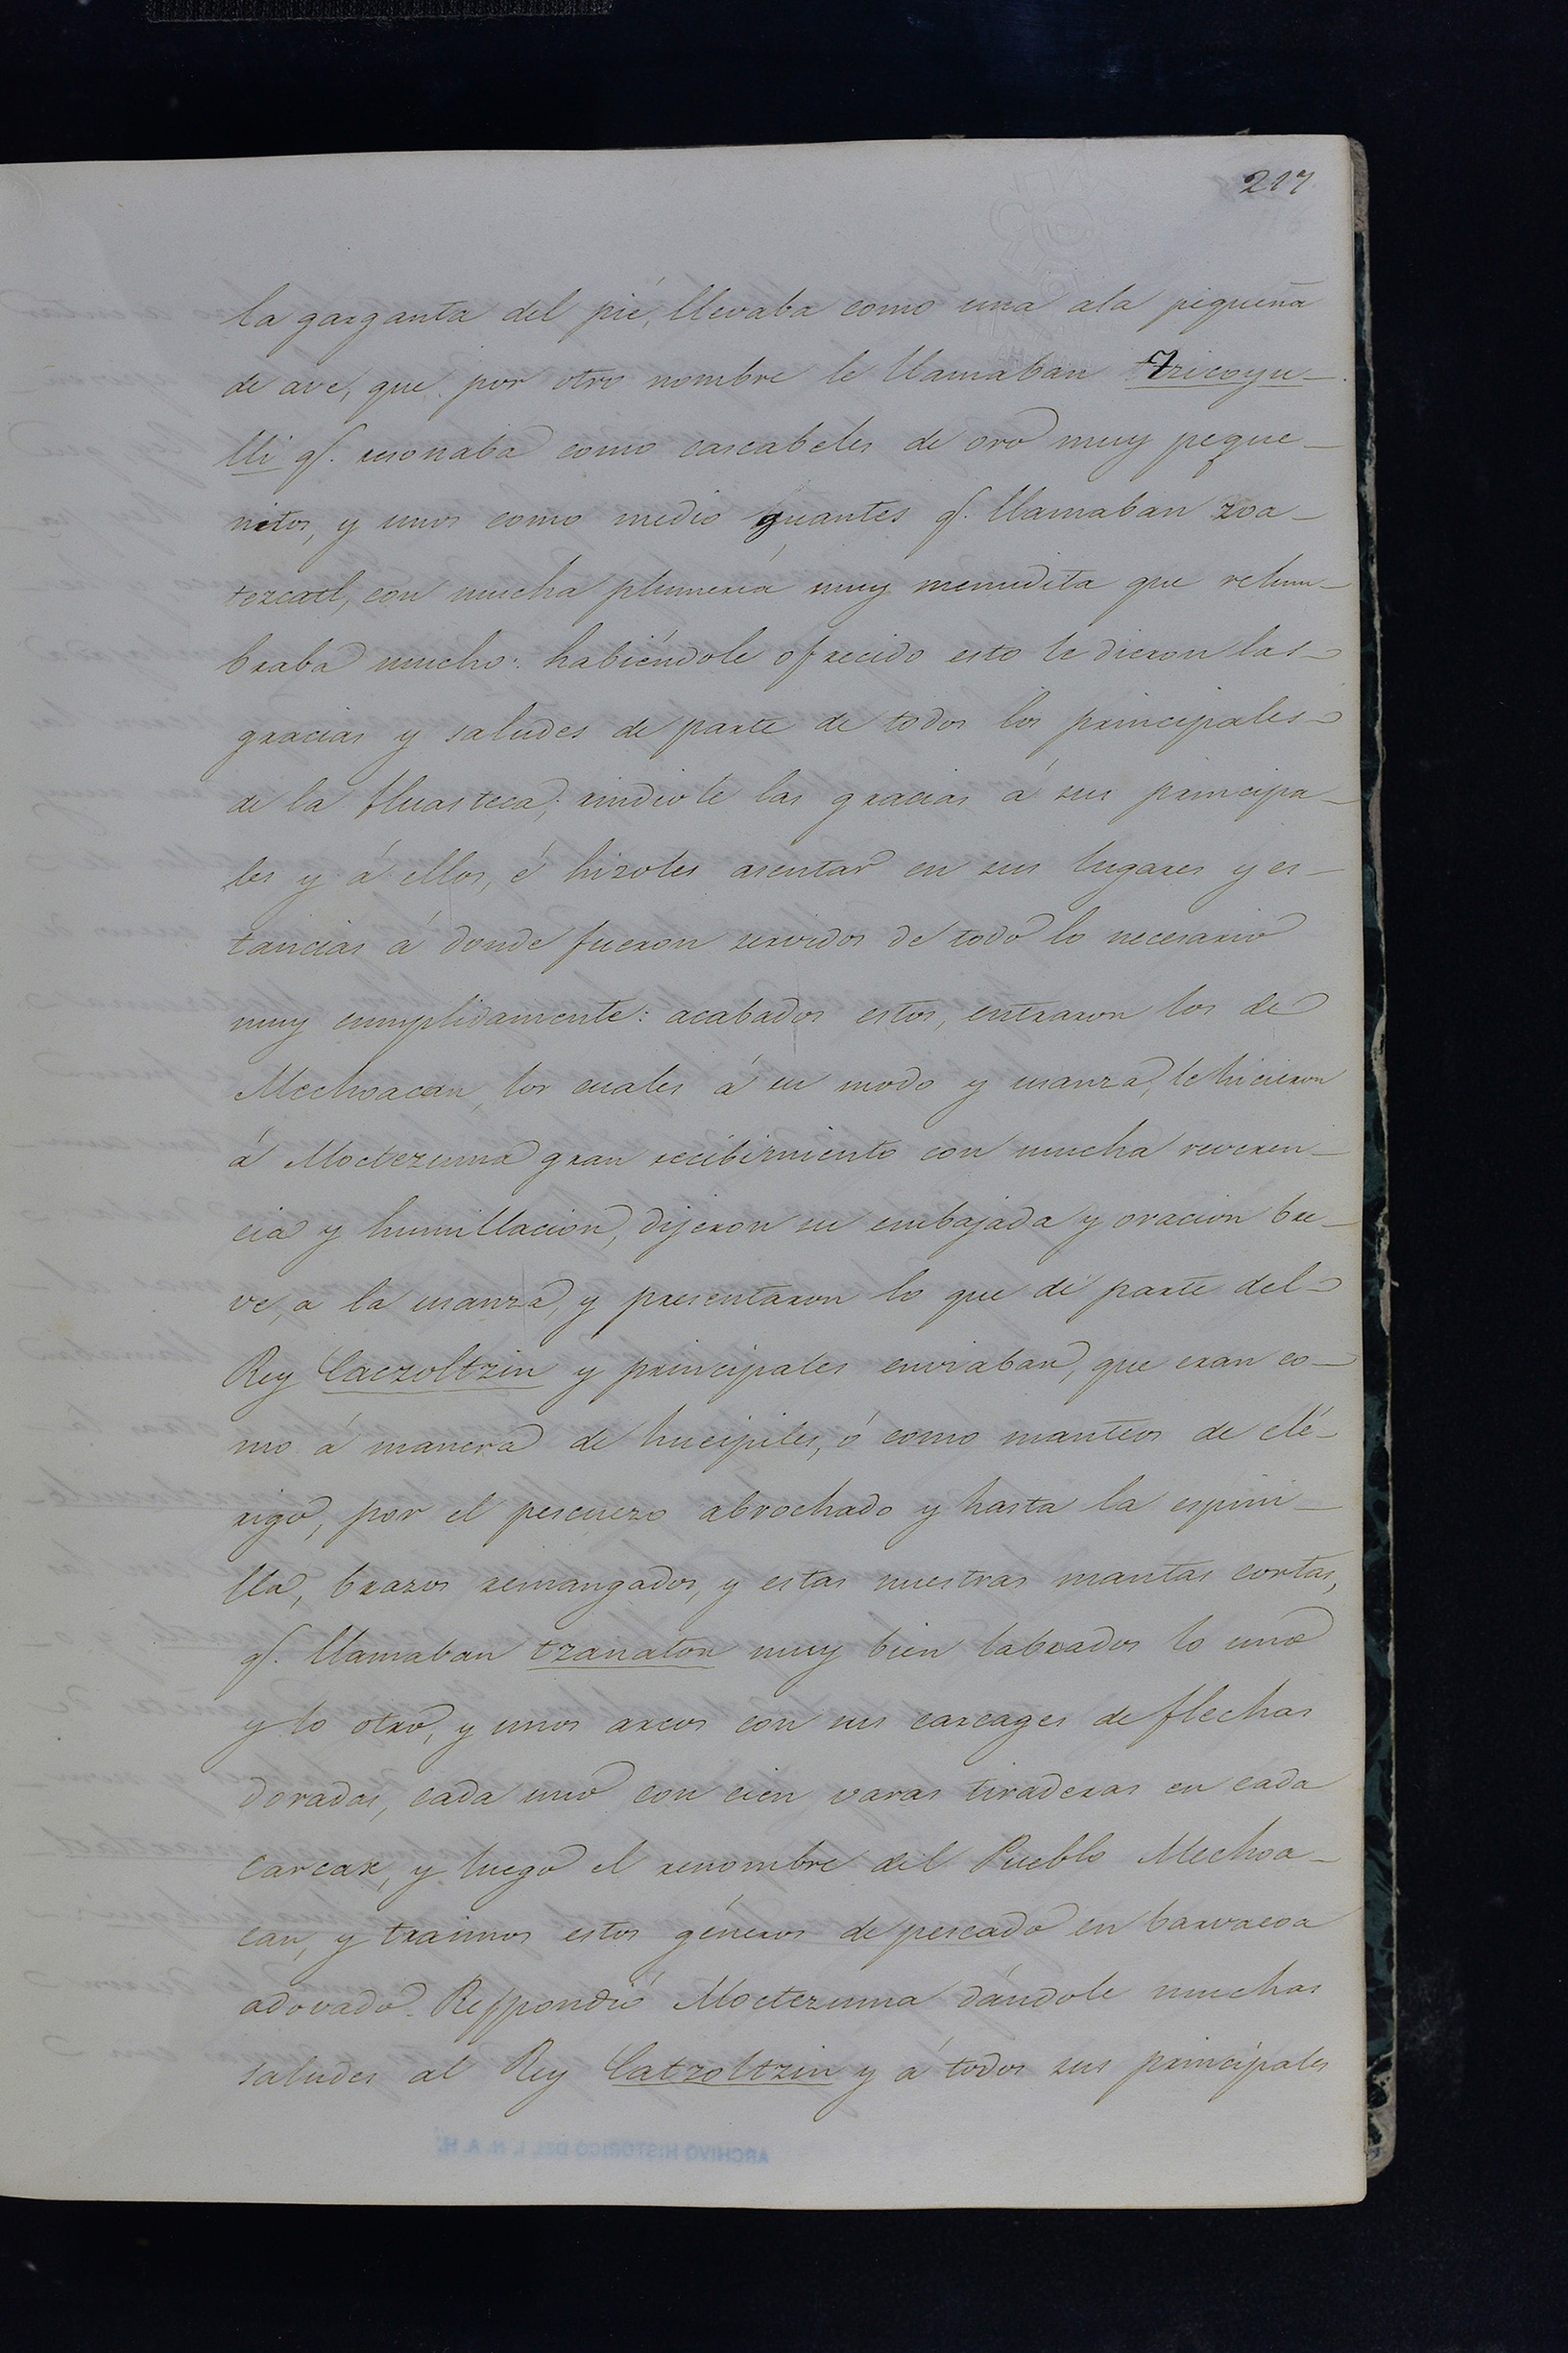 217
la garganta del pié, llevaba como una ala piqueña
de ave, que por otro nombre le llamaban Tzicoyu-
lli q. resonaba como cascabeles de oro muy peque-
nitos, y unos como medio guantes q. llamaban zoa-
tezcatl, con mucha plumeria muy menudita que relum-
braba mucho: habiéndole ofrecido esto le dieron las
gracias y saludes de parte de todos los principales
de la Huasteca; rindiole las gracias á sus principa-
les y á ellos, é hizoles asentar en sus lugares y es-
tancias á donde fueron servidos de todo lo necesario
muy cumplidamente: acabados estos, entraron los de
Mechoacan, los cuales á su modo y usanza, le hicieron
á Moctezuma gran recibimiento con mucha reveren-
cia y humillacion, dijeron su embajada y oracion bre-
ve, a la usanza, y presentaron lo que de parte del
Rey Caczoltzin y principales enviaban, que eran co-
mo á manera de hueipiles, ó como manteos de clé-
rigo, por el pescuezo abrochado y hasta la espini-
lla, brazos remangados, y estas nuestras mantas cortas,
q. llamaban tzanaton muy bien labrados lo uno
y lo otro, y unos arcos con sus carcages de flechas
doradas, cada uno con cien varas tiraderas en cada
carcax, y luego el renombre del Pueblo Mechoa-
can, y traimos estos géneros de pescado en barvacoa
adovado. Respondió Moctezuma dándole muchas
saludes al Rey Catzoltzin y á todos sus principales
ARCHIVO HISTORICO DEL I. N. A. H.